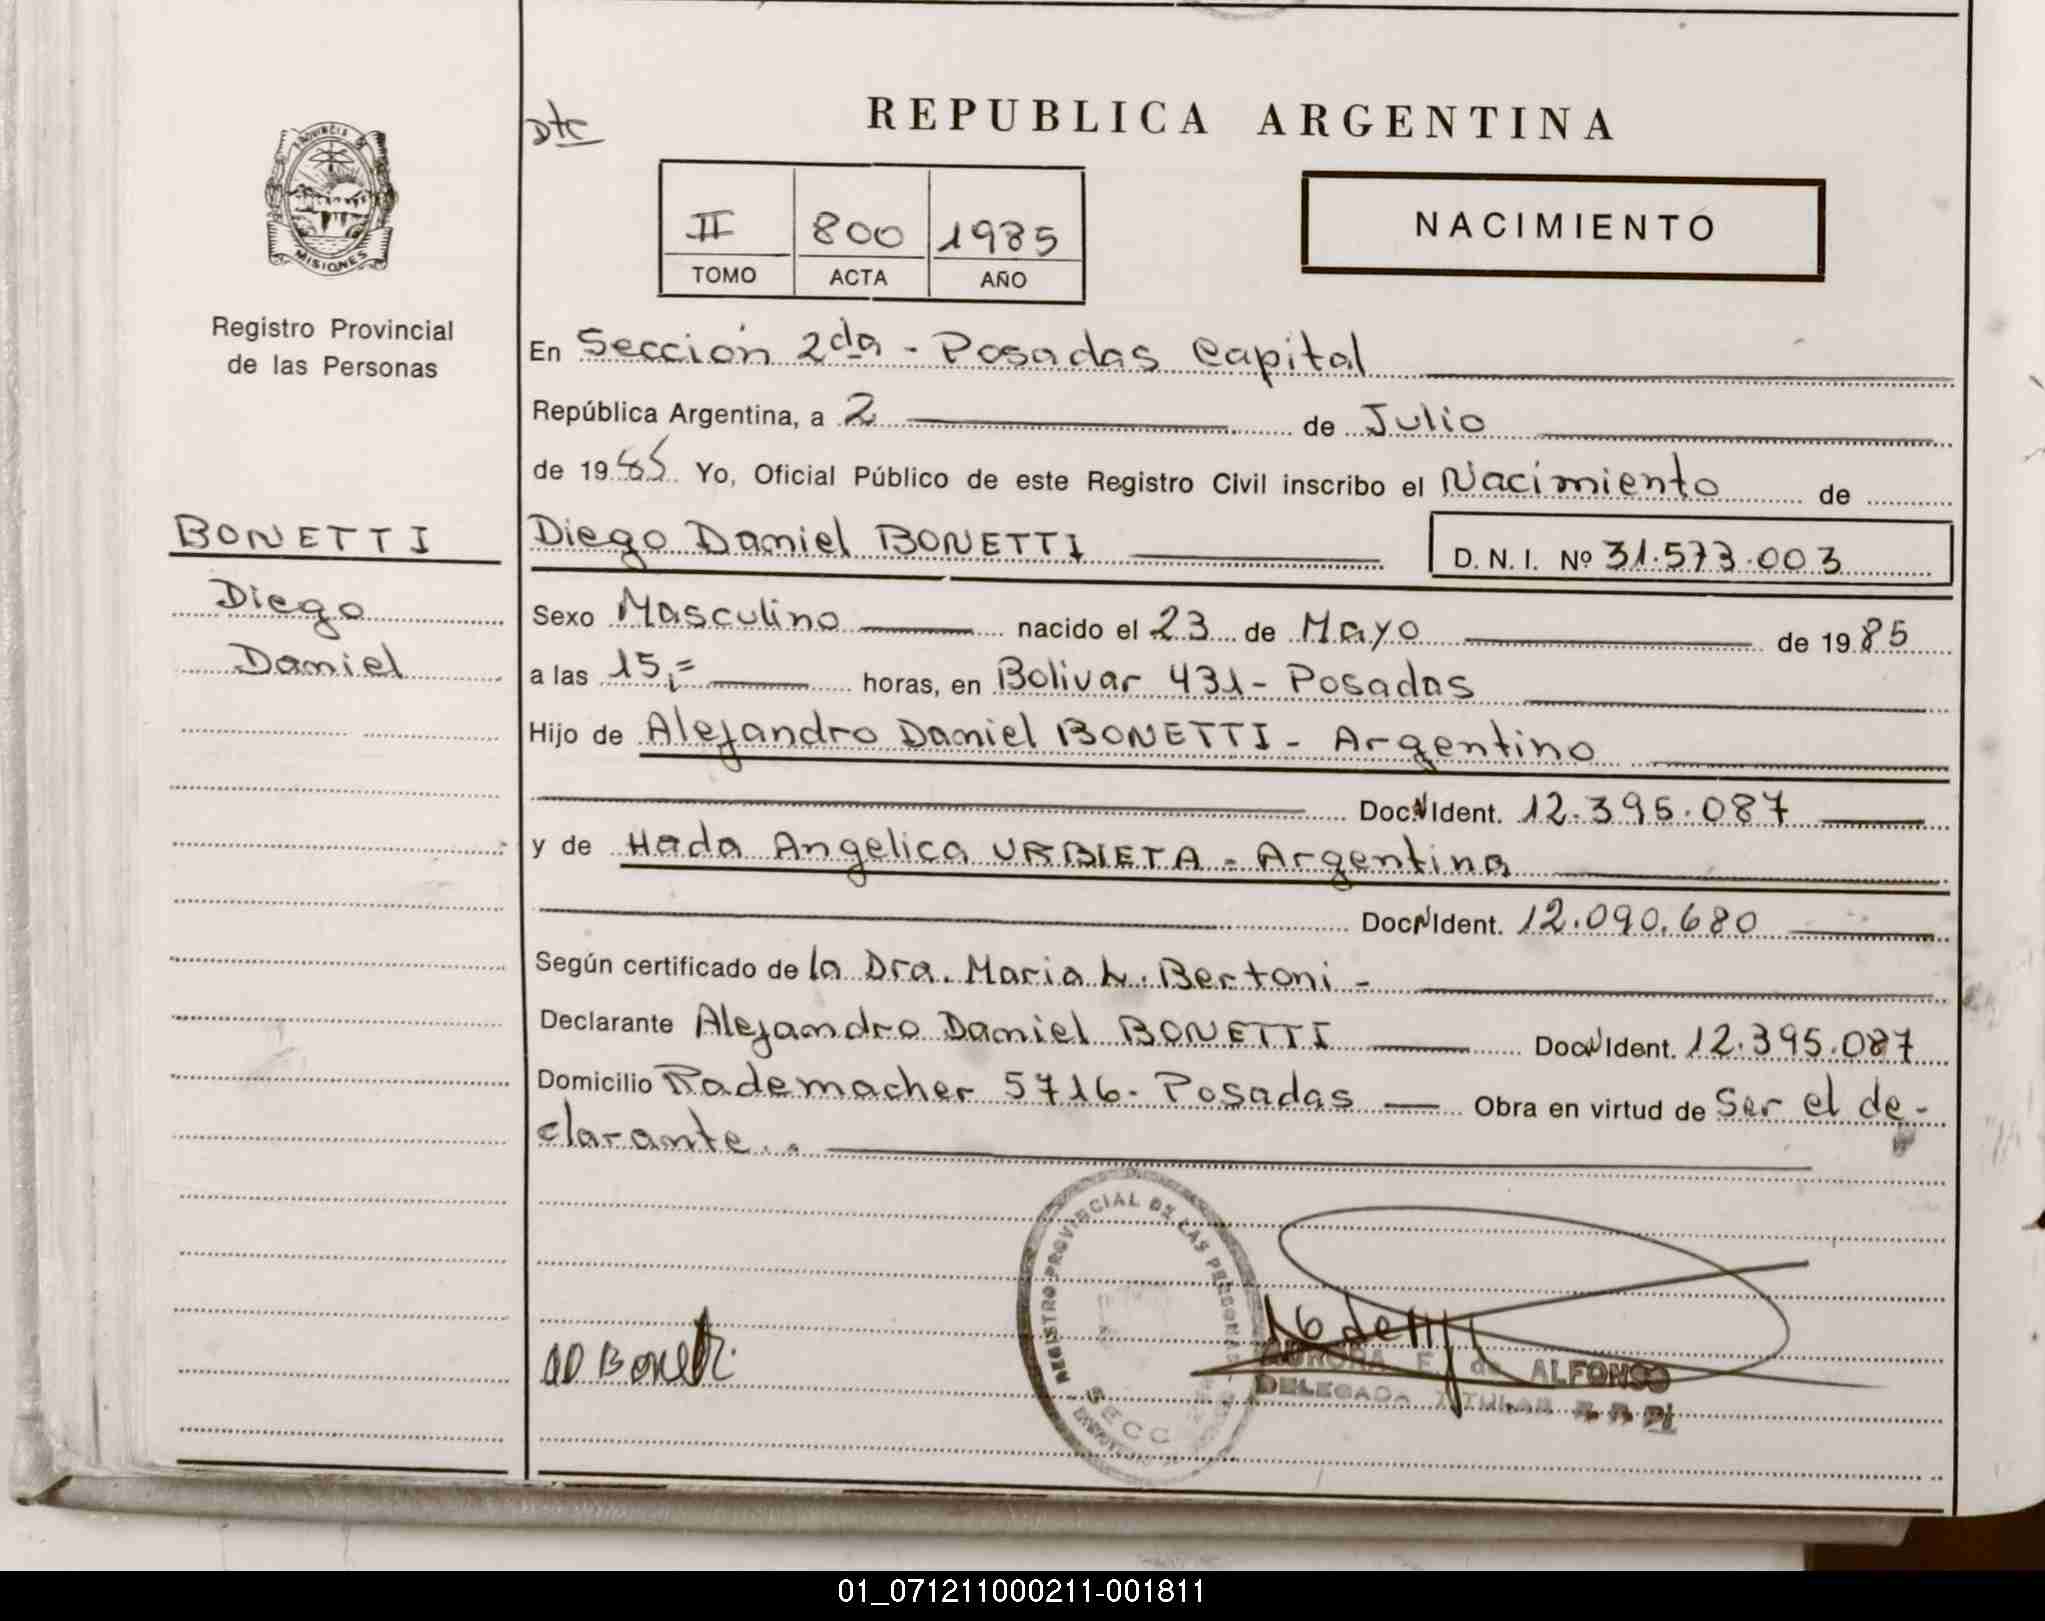 REPUBLICA ARGENTINA
PROVINCIA DE
MISIONES
Registro Provincial
de las Personas
II 800 1985
TOMO ACTA AÑO
NACIMIENTO
En Sección 2da - Posadas Capital
República Argentina, a 2 de Julio
de 1985 Yo, Oficial Público de este Registro Civil inscribo el Nacimiento de
BONETTI
Diego
Daniel
Diego Daniel BONETTI D. N. I. Nº 31.573.003
Sexo Masculino nacido el 23 de Mayo de 1985
a las 15,= horas, en Bolivar 431 - Posadas
Hijo de Alejandro Daniel BONETTI - Argentino
Doc. N Ident. 12.395.087
y de Hada Angelica URBIETA - Argentina
Doc. N Ident. 12.090.680
Según certificado de la Dra. Maria L. Bertoni -
Declarante Alejandro Daniel BONETTI Doc. N Ident. 12.395.087
Domicilio Rademacher 5716 - Posadas Obra en virtud de Ser el de-
clarante..
REGISTRO PROVINCIAL DE LAS PERSONAS
SECC
AD Bonetti
AURORA F. de ALFONSO
DELEGADA TITULAR
01_071211000211-001811